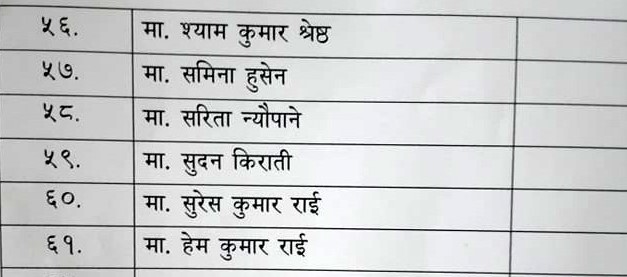 ५६. मा. श्याम कुमार श्रेष्ठ
५७. मा. समिना हुसेन
५८. मा. सरिता न्यौपाने
५९. मा. सुदन किराती
६०. मा. सुरेस कुमार राई
६१. मा. हेम कुमार राई